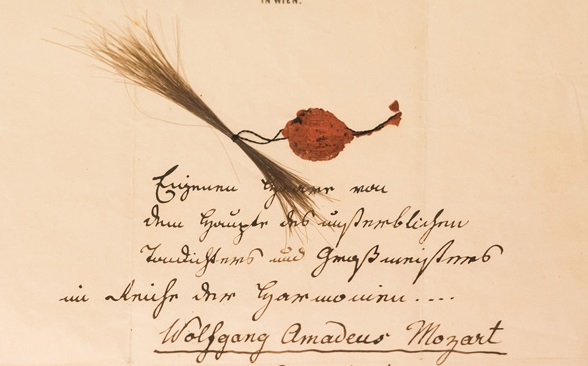 IN WIEN.
Eigenen Haare von
dem Haupte des unsterblichen
Tondichters und Großmeisters
im Reiche der Harmonien....
Wolfgang Amadeus Mozart